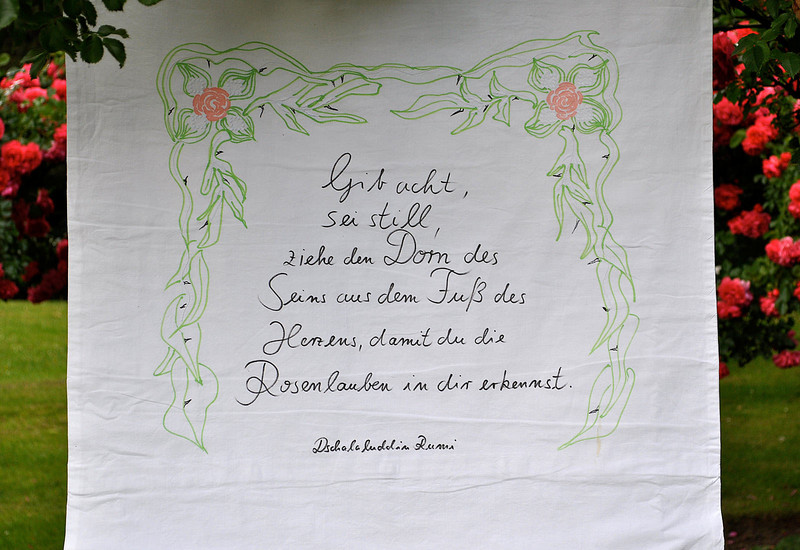 Gib acht,
sei still,
ziehe den Dorn des
Seins aus dem Fuß des
Herzens, damit du die
Rosenlauben in dir erkennst.
Dschalaluddin Rumi